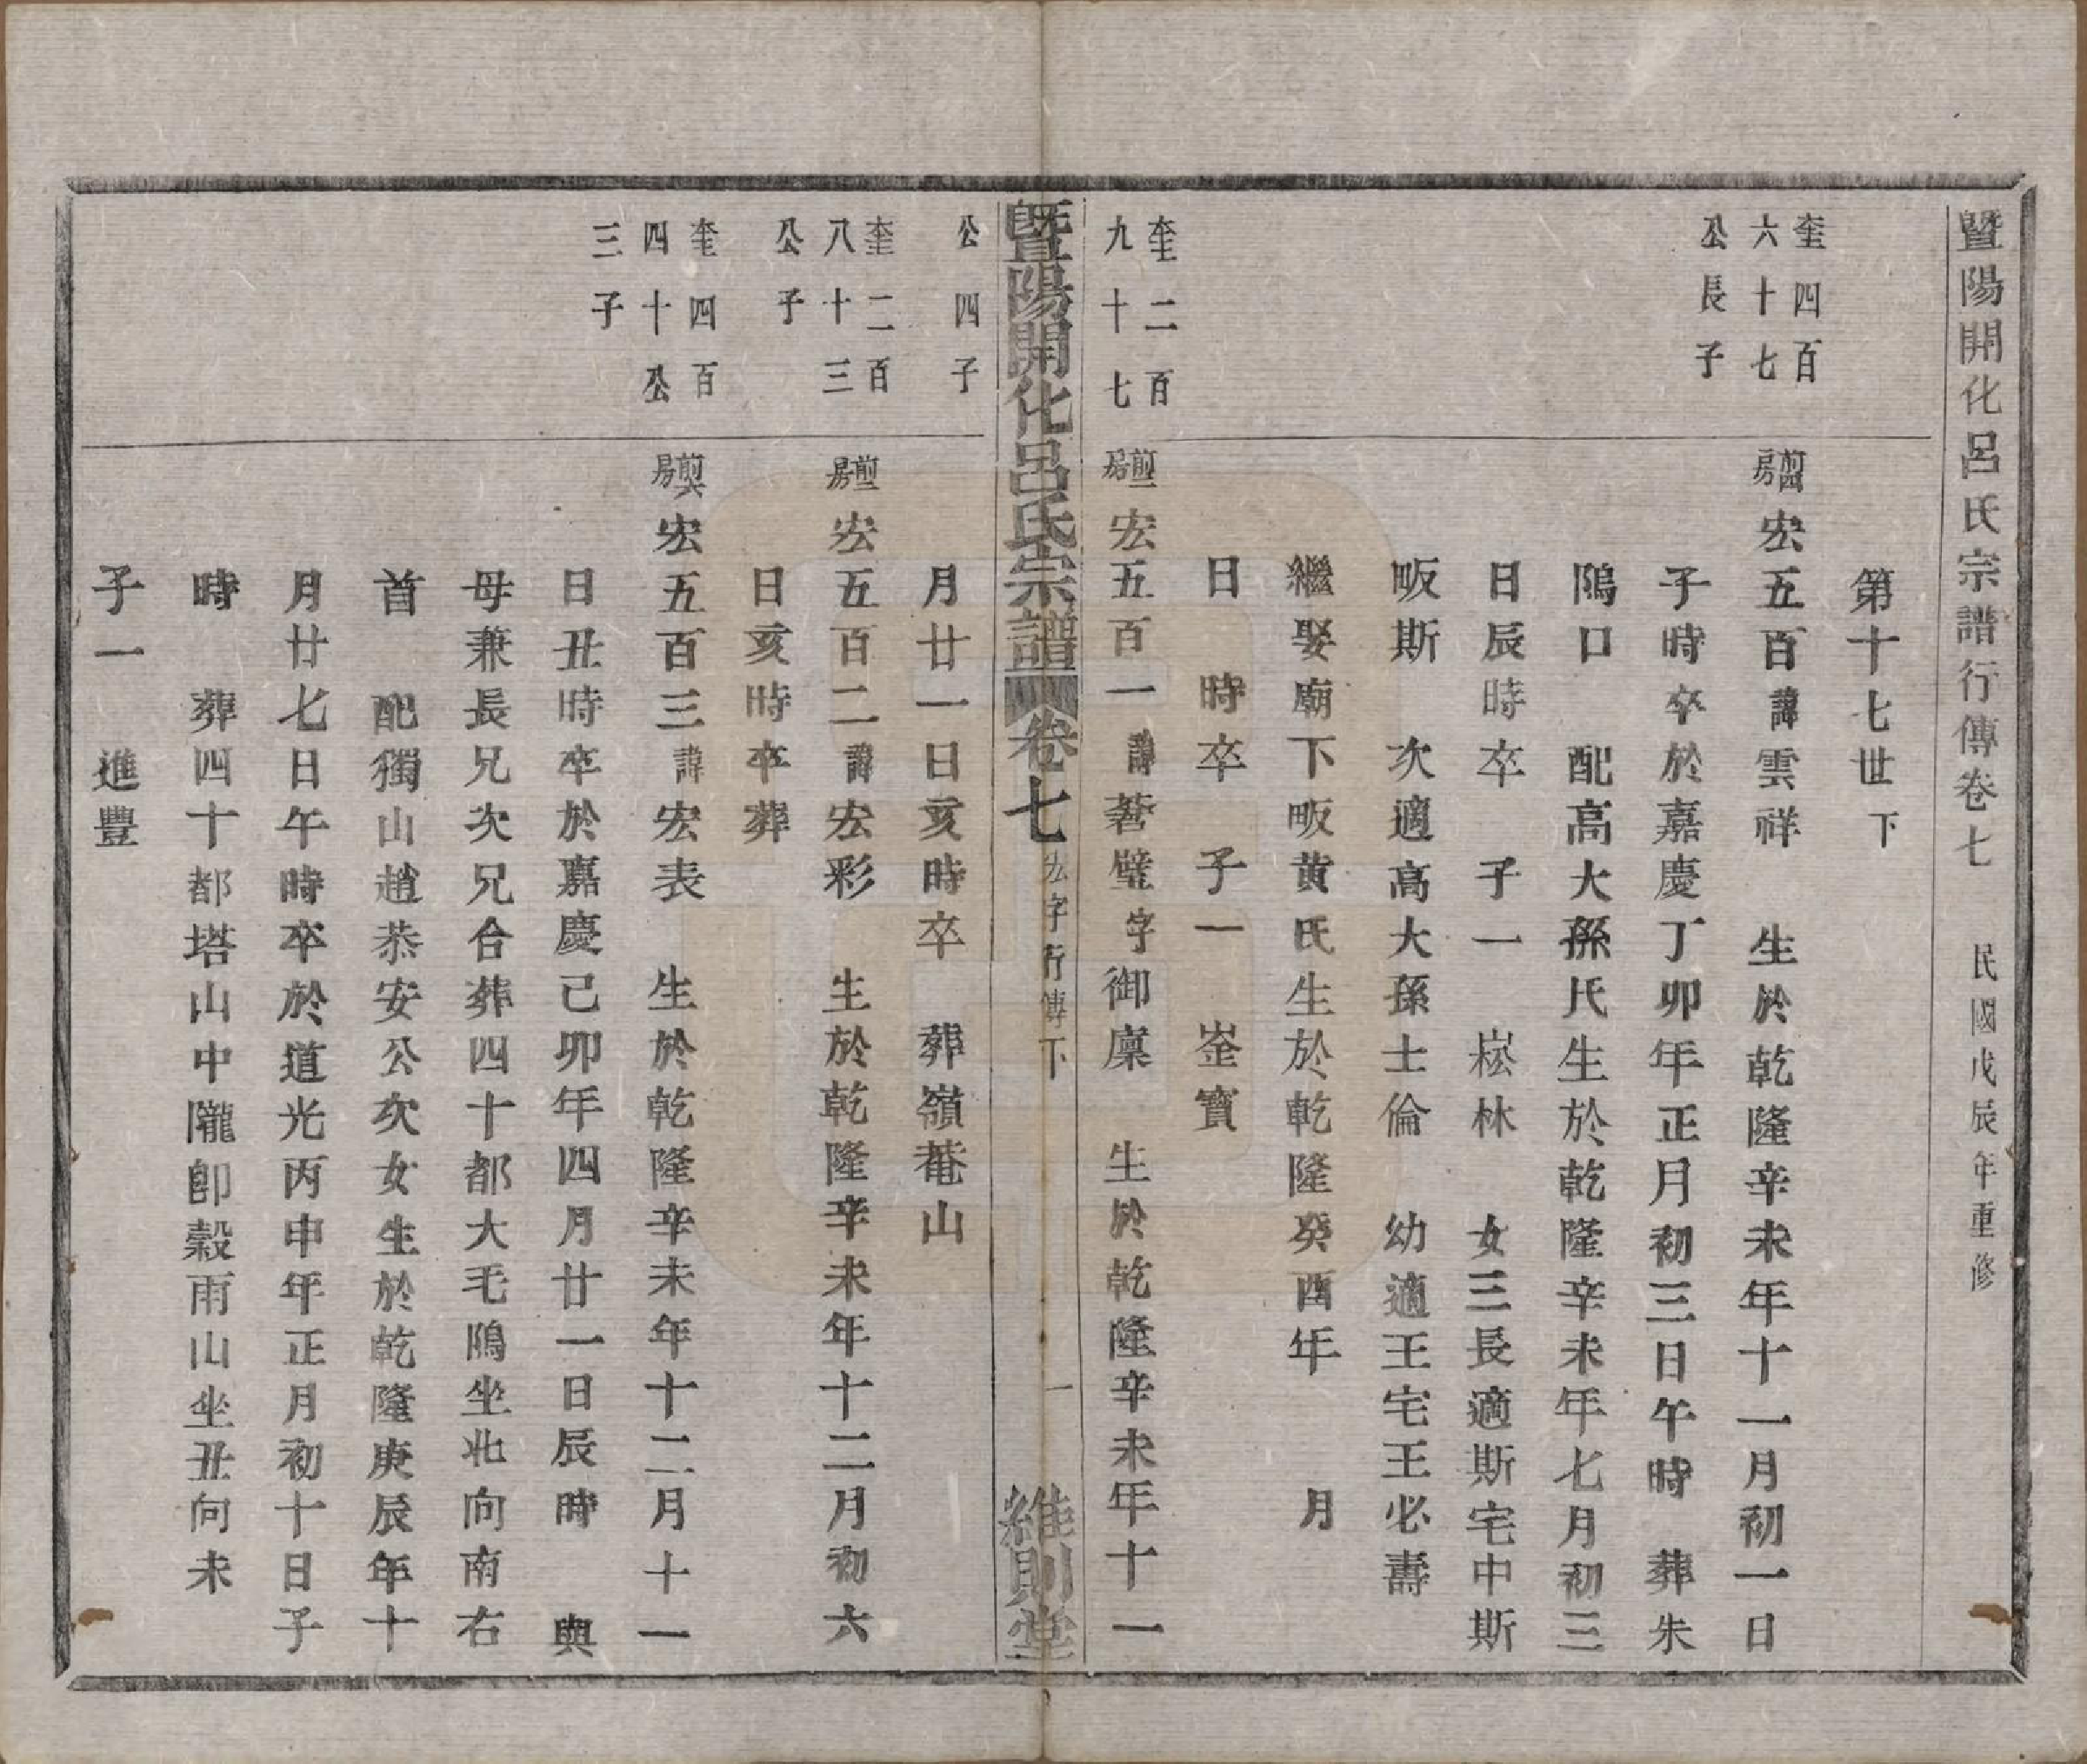 暨陽開化呂氏宗譜行傳卷七　民國戊辰年重修
第十七世下
奎四百
六十七
公長子
翦四房
宏五百諱雲祥　生於乾隆辛未年十一月初一日
子時卒於嘉慶丁卯年正月初三日午時　葬朱
隖口　配高大孫氏生於乾隆辛未年七月初三
日辰時卒　子一　崧林　女三長適斯宅中斯
畈斯　次適高大孫士倫　幼適王宅王必壽
繼娶廟下畈黄氏生於乾隆癸酉年　月
日　時卒　子一　崟寶
奎二百
九十七
房
宏五百一諱蒼璧字御廩　生於乾隆辛未年十一
暨陽開化呂氏宗譜
卷七
宏字行傳下
一
維則堂
公四子
月廿一日亥時卒　葬嶺菴山
奎二百
八十三
公子
房
宏五百二諱宏彩　生於乾隆辛未年十二月初六
日亥時卒葬
奎四百
四十公
三子
房
宏五百三諱宏表　生於乾隆辛未年十二月十一
日丑時卒於嘉慶己卯年四月廿一日辰時　與
母兼長兄次兄合葬四十都大毛隖坐北向南右
首　配獨山趙恭安公次女生於乾隆庚辰年十
月廿七日午時卒於道光丙申年正月初十日子
時　葬四十都塔山中隴卽穀雨山坐丑向未
子一　進豐